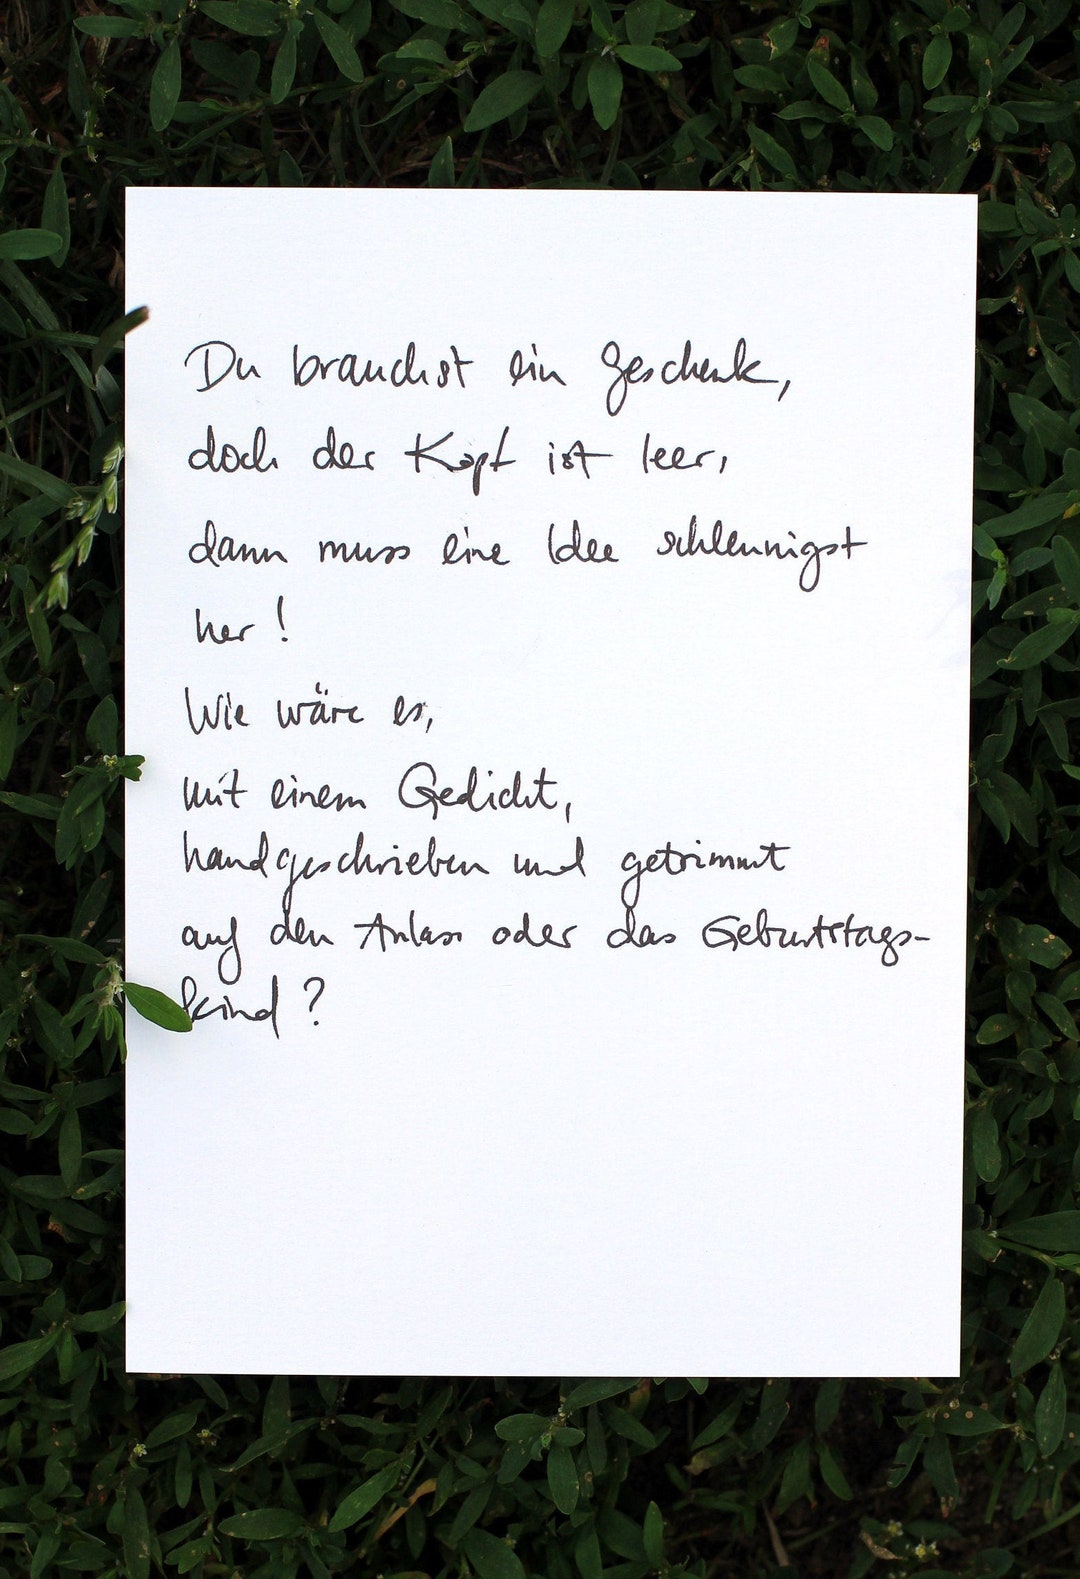 Du brauchst ein Geschenk,
doch der Kopf ist leer,
dann muss eine Idee schleunigst
her!
Wie wäre es,
mit einem Gedicht,
handgeschrieben und getrimmt
auf den Anlass oder das Geburtstags-
kind?